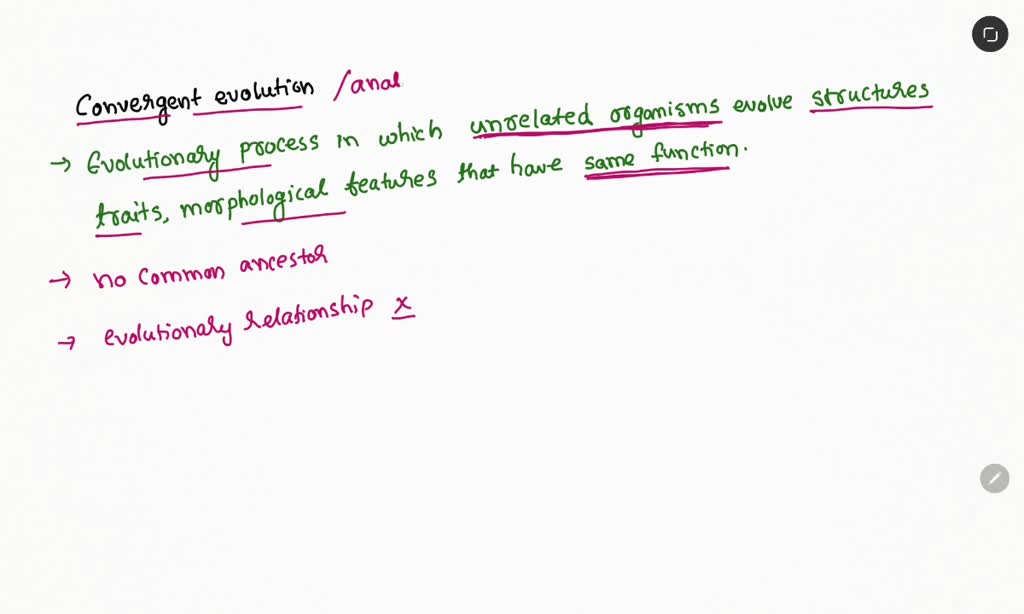 Convergent evolution /anal
→ Evolutionary process in which unrelated organisms evolve structures
traits, morphological features that have same function.
→ no common ancestor
→ evolutionary relationship x